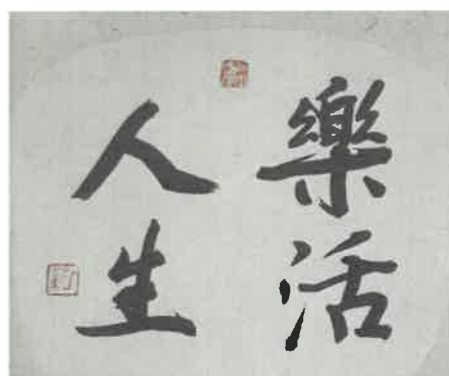 樂活
人生